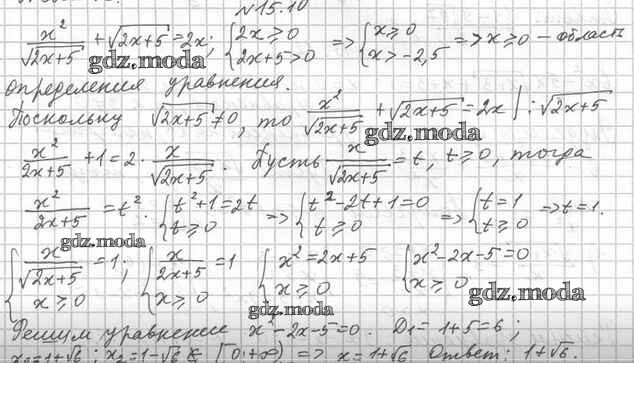 №15.10
x²/√(2x+5) + √(2x+5) = 2x; { 2x ≥ 0 2x+5 > 0 => { x ≥ 0 x > -2,5 => x ≥ 0 – область
gdz.moda
определения уравнения.
Поскольку √(2x+5) ≠ 0, то x²/√(2x+5) + √(2x+5) = 2x | : √(2x+5)
gdz.moda
x²/(2x+5) + 1 = 2 · x/√(2x+5). Пусть x/√(2x+5) = t, t ≥ 0, тогда
x²/(2x+5) = t². { t²+1=2t t ≥ 0 => { t²-2t+1=0 t ≥ 0 => { t=1 t ≥ 0 => t=1.
gdz.moda
{ x/√(2x+5) = 1; x ≥ 0 { x/(2x+5) = 1 x ≥ 0 { x² = 2x+5 x ≥ 0 { x²-2x-5=0 x ≥ 0
gdz.moda gdz.moda
Решим уравнение x²-2x-5=0. D₁ = 1+5=6;
x₁=1+√6; x₂=1-√6 ∉ [0;+∞) => x=1+√6 Ответ: 1+√6.